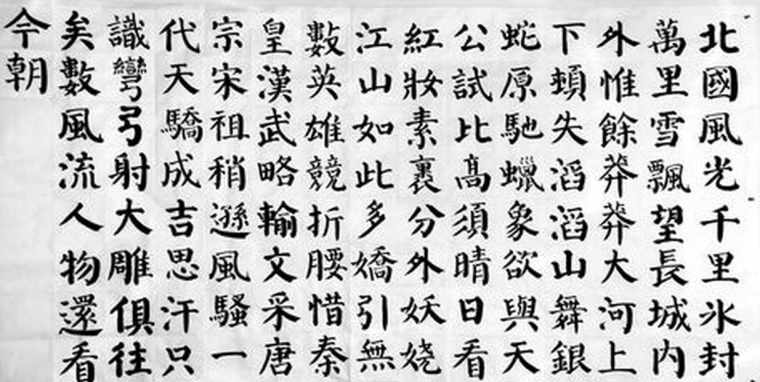 北國風光千里氷封
萬里雪飄望長城内
外惟餘莽莽大河上
下頓失滔滔山舞銀
蛇原馳蠟象欲與天
公試比高須晴日看
紅妝素裹分外妖娆
江山如此多嬌引無
數英雄競折腰惜秦
皇漢武略輸文采唐
宗宋祖稍遜風騷一
代天驕成吉思汗只
識彎弓射大雕俱往
矣數風流人物還看
今朝